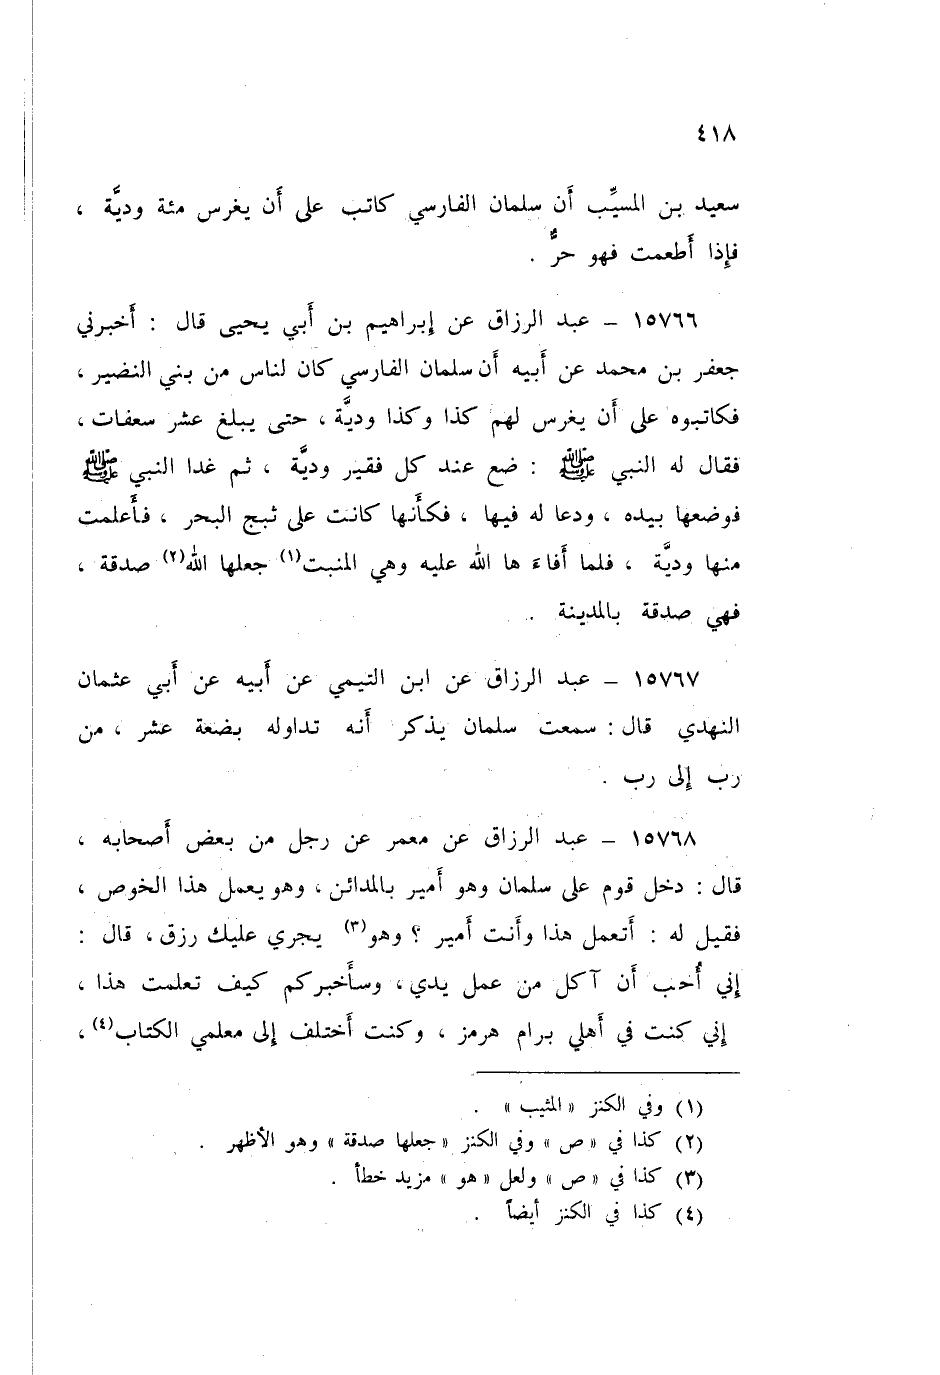 ٤١٨
سعيد بن المسيِّب أَن سلمان الفارسي كاتب على أَن يغرس مئة وديَّة ،
فإِذا أَطعمت فهو حرٌّ .
١٥٧٦٦ – عبد الرزاق عن إِبراهيم بن أَبي يحيى قال : أَخبرني
جعفر بن محمد عن أَبيه أَن سلمان الفارسي كان لناس من بني النضير ،
فكاتبوه على أَن يغرس لهم كذا وكذا وديَّة ، حتى يبلغ عشر سعفات ،
فقال له النبي ﷺ : ضع عند كل فقير وديَّة ، ثم غدا النبي ﷺ
فوضعها بيده ، ودعا له فيها ، فكأَنها كانت على ثبج البحر ، فأَعلمت
منها وديَّة ، فلما أَفاءَ ها الله عليه وهي المنبت(١) جعلها الله(٢) صدقة ،
فهي صدقة بالمدينة .
١٥٧٦٧ – عبد الرزاق عن ابن التيمي عن أَبيه عن أَبي عثمان
النهدي قال : سمعت سلمان يذكر أَنه تداوله بضعة عشر ، من
رب إِلى رب .
١٥٧٦٨ – عبد الرزاق عن معمر عن رجل من بعض أَصحابه ،
قال : دخل قوم على سلمان وهو أَمير بالمدائن ، وهو يعمل هذا الخوص ،
فقيل له : أَتعمل هذا وأَنت أَمير ؟ وهو(٣) يجري عليك رزق ، قال :
إِني أُحب أَن آكل من عمل يدي ، وسأَخبركم كيف تعلمت هذا ،
إِني كنت في أَهلي برام هرمز ، وكنت أَختلف إِلى معلمي الكتاب(٤) ،
(١) وفي الكنز «المثيب» .
(٢) كذا في «ص» وفي الكنز «جعلها صدقة» وهو الأظهر .
(٣) كذا في «ص» ولعل «هو» مزيد خطأ .
(٤) كذا في الكنز أيضاً .